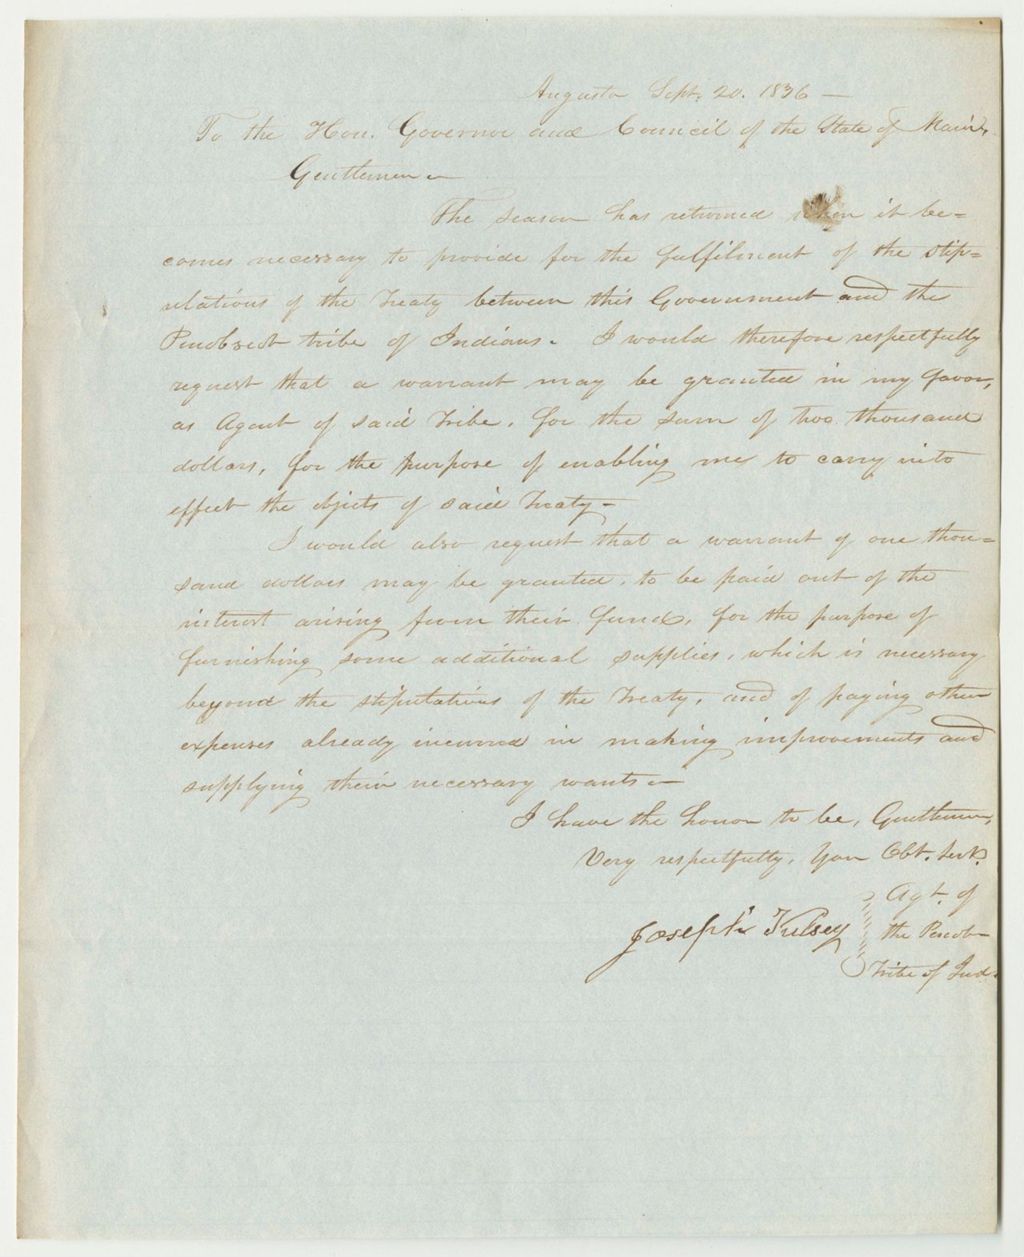 Augusta Sept. 20. 1836 —
To the Hon. Governor and Council of the State of Maine,
Gentlemen —
The season has returned when it be=
comes necessary to provide for the fulfilment of the stip=
ulations of the Treaty between this Government and the
Penobscot tribe of Indians. I would therefore respectfully
request that a warrant may be granted in my favor,
as Agent of said Tribe, for the sum of two thousand
dollars, for the purpose of enabling me to carry into
effect the objects of said Treaty —
I would also request that a warrant of one thou=
sand dollars may be granted, to be paid out of the
interest arising from their fund, for the purpose of
furnishing some additional supplies, which is necessary
beyond the stipulations of the Treaty, and of paying other
expenses already incurred in making improvements and
supplying their necessary wants —
I have the honor to be, Gentlemen,
Very respectfully, Your Obt. Servt.
Joseph Kelsey
Agt. of
the Penob
Tribe of Ind.